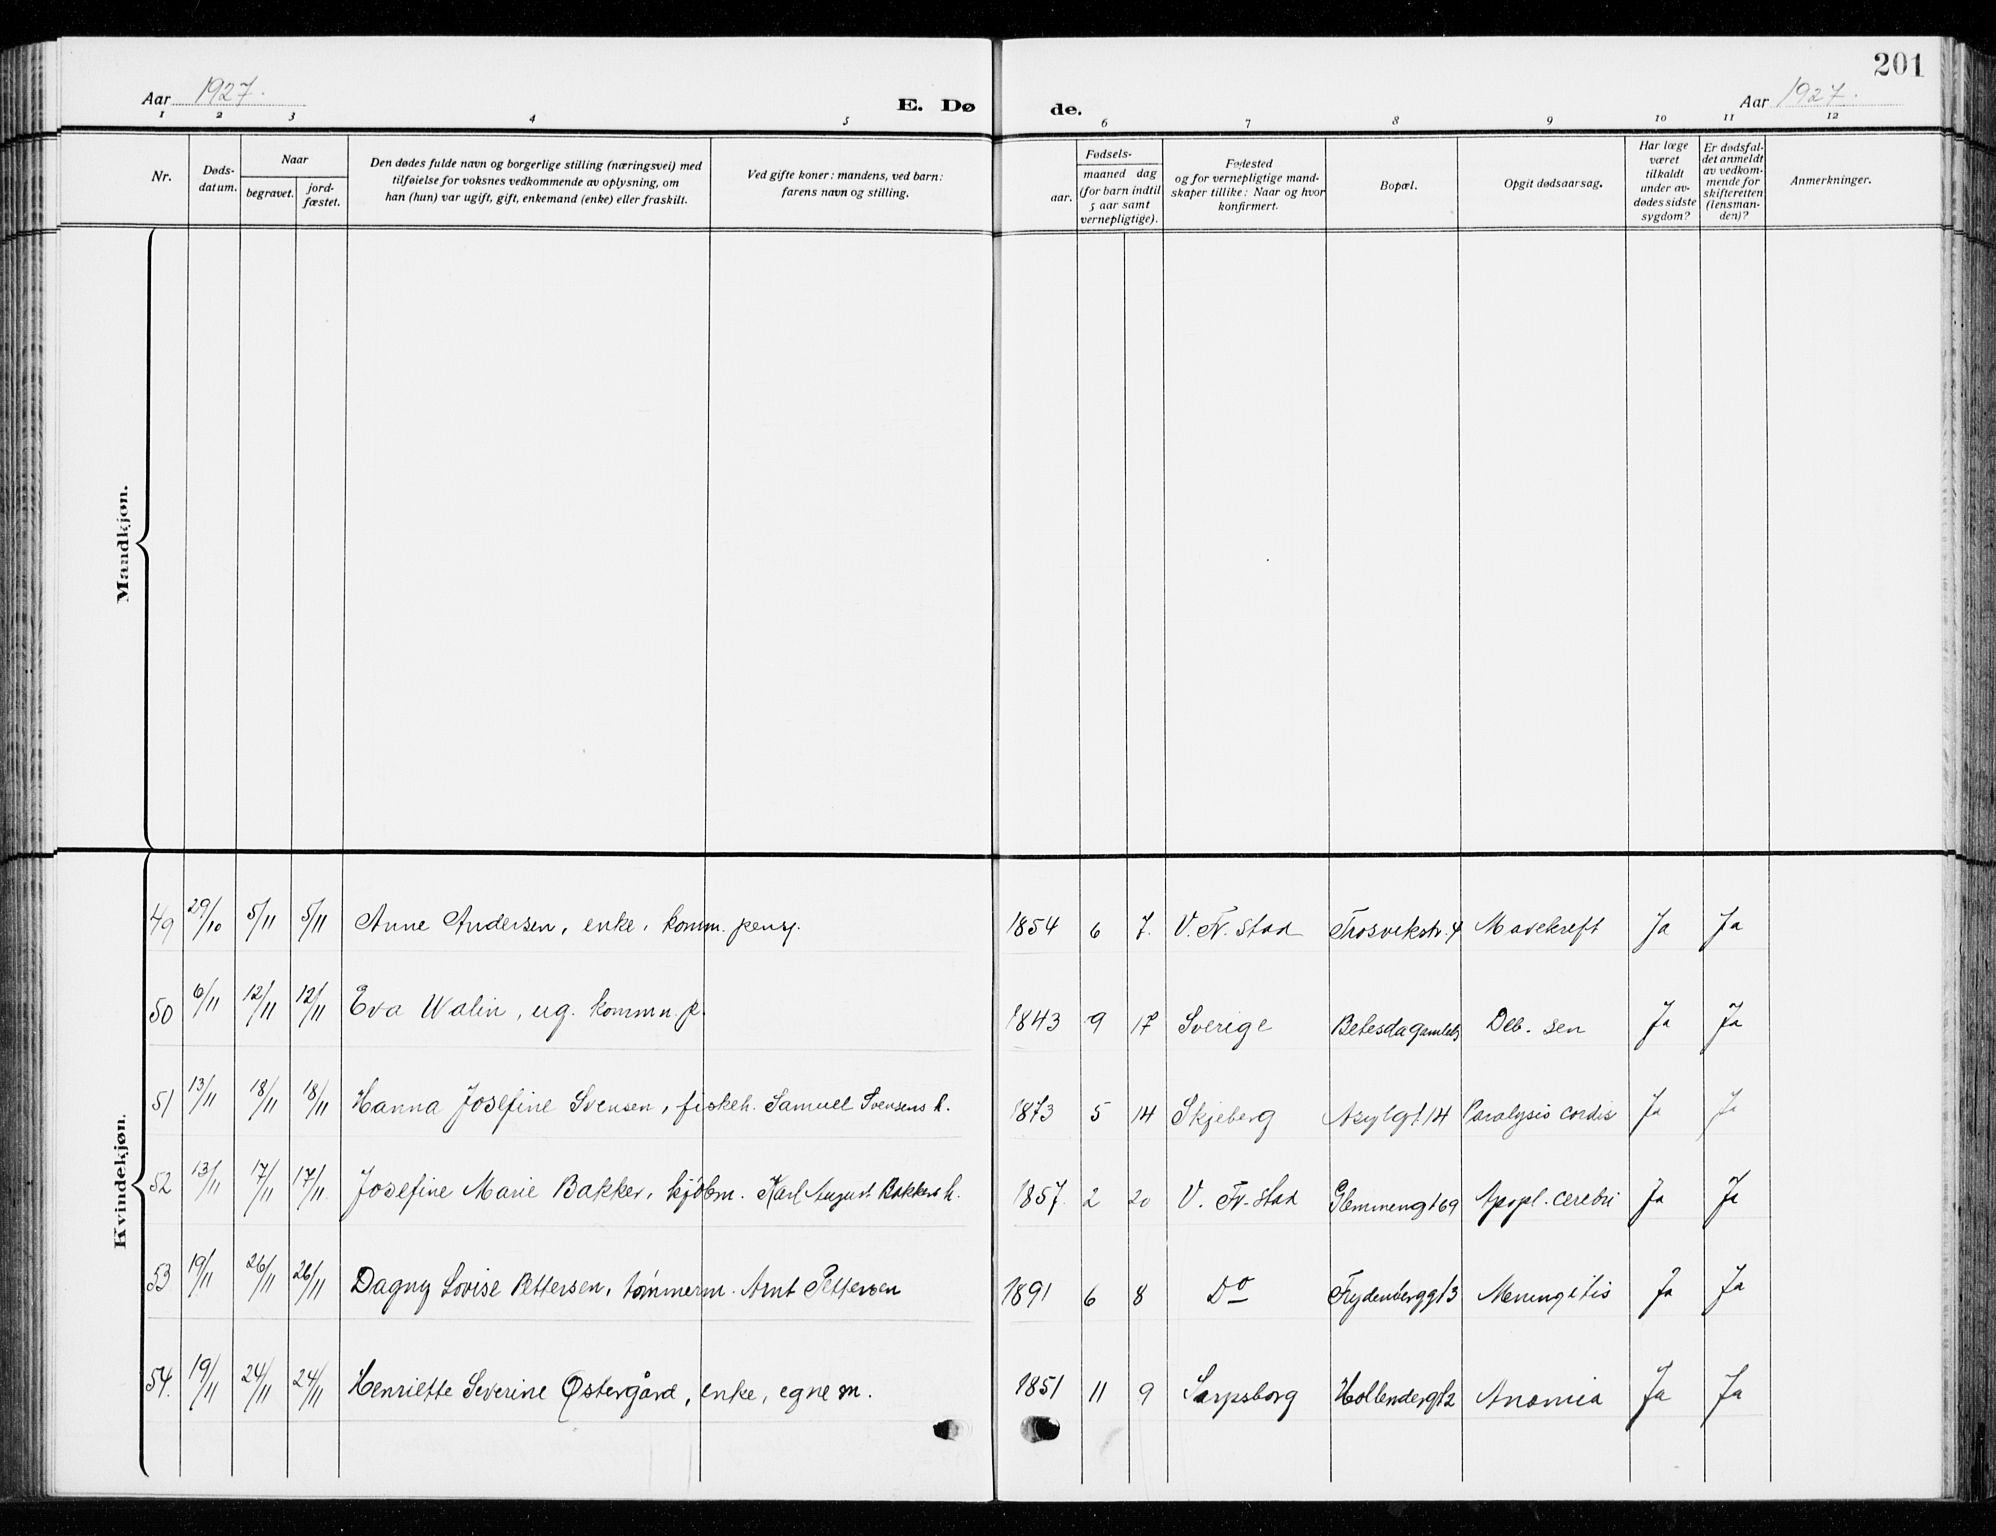 201
Aar 1927. E. Dø de. Aar 1927.
1 2 3 4 5 6 7 8 9 10 11 12
Nr.
Døds-
datum.
Naar
begravet.
jord-
fæstet.
Den dødes fulde navn og borgerlige stilling (næringsvei) med
tilføielse for voksnes vedkommende av oplysning, om
han (hun) var ugift, gift, enkemand (enke) eller fraskilt.
Ved gifte koner: mandens, ved barn:
farens navn og stilling.
aar.
Fødsels-
maaned dag
(for barn indtil
5 aar samt
vernepligtige).
Fødested
og for vernepligtige mand-
skaper tillike: Naar og hvor
konfirmert.
Bopæl.
Opgit dødsaarsag.
Har læge
været
tilkaldt
under av-
dødes sidste
sygdom?
Er dødsfal-
det anmeldt
av vedkom-
mende for
skifteretten
(lensman-
den)?
Anmerkninger.
Mandkjøn.
Kvindekjøn.
49 29/10 5/11 5/11 Anne Andersen, enke, komm. pensj. 1854 6 7. V. Fr. stad Trosvikstr. 4 Mavekreft Ja Ja
50 6/11 12/11 12/11 Eva Walin, ug. kommn. p. 1843 9 17 Sverige Betesda gamleh Deb. sen Ja Ja
51 13/11 18/11 18/11 Hanna Josefine Svensen, fiskeh. Samuel Svensens h. 1873 5 14 Skjeberg Asylgt 14 Paralysis cordis Ja Ja
52 13/11 17/11 17/11. Josefine Marie Bakker, kjøbm. Karl August Bakkers h. 1857. 2 20 V. Fr. stad Glemmengt 69 Apopl. cerebri Ja Ja
53 19/11 26/11 26/11 Dagny Lovise Pettersen, tømmerm. Arnt Pettersen 1891 6 8 Do Frydenberggt 3 Meningitis Ja Ja
54. 19/11 24/11 24/11 Henriette Severine Østergård, enke, egne m. 1851 11 9 Sarpsborg Hollendergt 2 Anomia Ja Ja